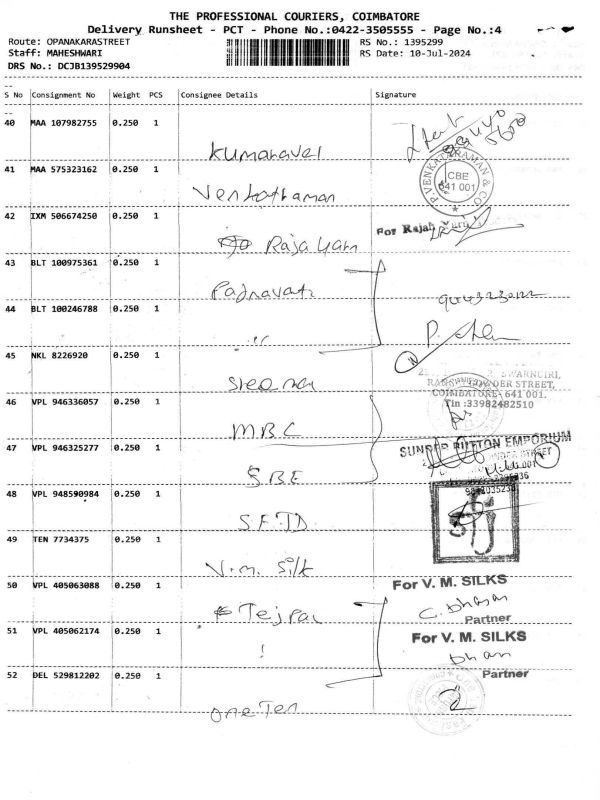 THE PROFESSIONAL COURIERS, COIMBATORE
Delivery Runsheet - PCT - Phone No.:0422-3505555 - Page No.:4
Route: OPANAKARASTREET RS No.: 1395299
Staff: MAHESHWARI RS Date: 10-Jul-2024
DRS No.: DCJB139529904
S No Consignment No Weight PCS Consignee Details Signature
40 MAA 107982755 0.250 1
Kumaravel
P.VENKATARAMAN & CO
CBE
641 001
41 MAA 575323162 0.250 1
Venkattaman
42 IXM 506674250 0.250 1
For Rajah
Rajaram
43 BLT 100975361 0.250 1
Padmavati
44 BLT 100246788 0.250 1
"
45 NKL 8226920 0.250 1
STREET,
COIMBATORE- 641 001.
Tin :33982482510
46 VPL 946336057 0.250 1
MBC
SUNDER BUTTON EMPORIUM
47 VPL 946325277 0.250 1
SBE
48 VPL 948590984 0.250 1
49 TEN 7734375 0.250 1
V.M. Silk
50 VPL 405063088 0.250 1
For V. M. SILKS
Tejpal
Partner
51 VPL 405062174 0.250 1
For V. M. SILKS
52 DEL 529812202 0.250 1
Partner
One Ten